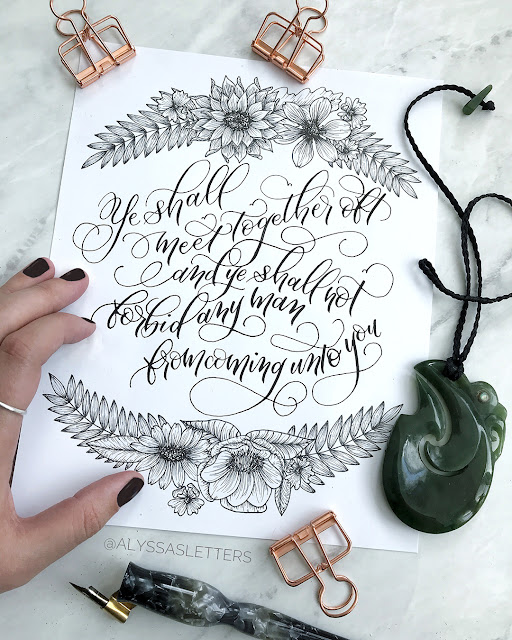 Ye shall
meet together oft
and ye shall not
forbid any man
from coming unto you
@ALYSSASLETTERS